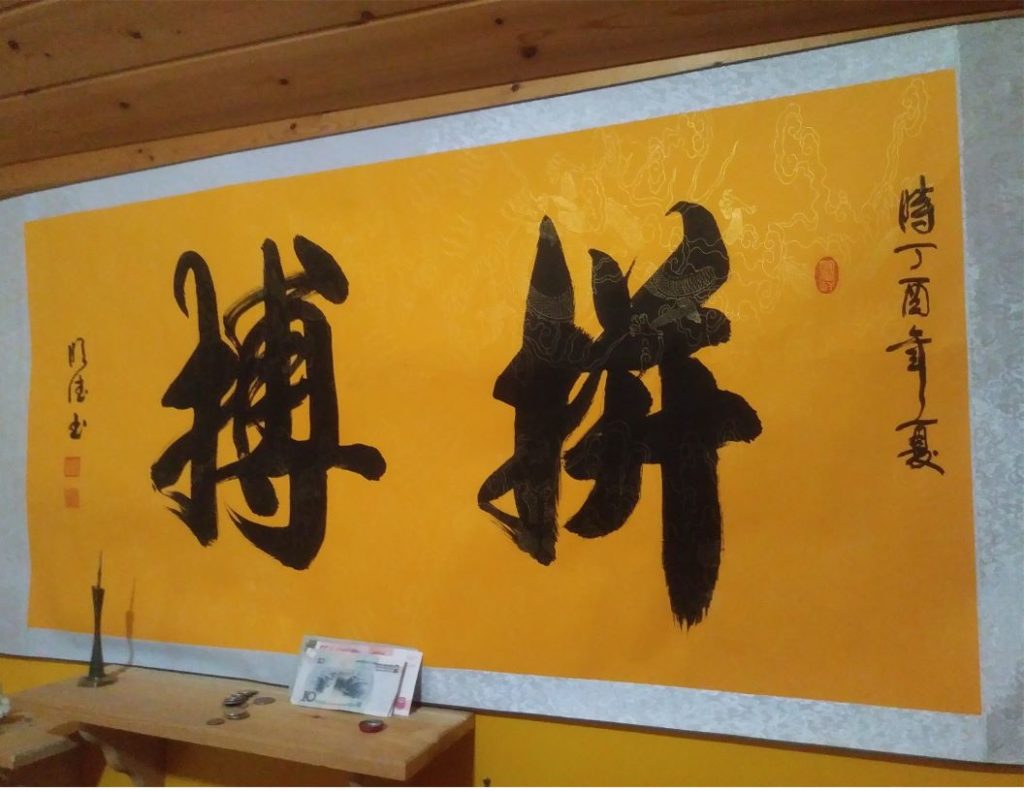 拼搏
時丁酉年夏
德书
10